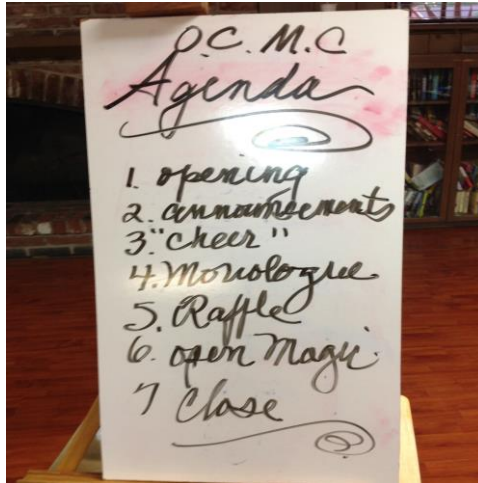 O.C.M.C
Agenda
1. opening
2. announcements
3. "cheer"
4. Monologue
5. Raffle
6. open Magic
7 close